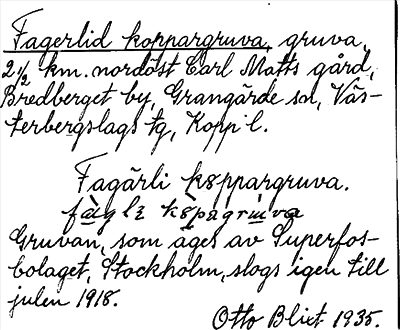 Fagerlid koppargruva, gruva,
2 1/2 km. nordöst Carl Matts gård,
Bredberget by, Grangärde sn, Väs-
terbergslags tg, Kopp. l.
Fagärli koppargruva.
Gruvan, som äges av Superfos-
bolaget, Stockholm, slogs igen till
julen 1918.
Otto Blixt 1935.